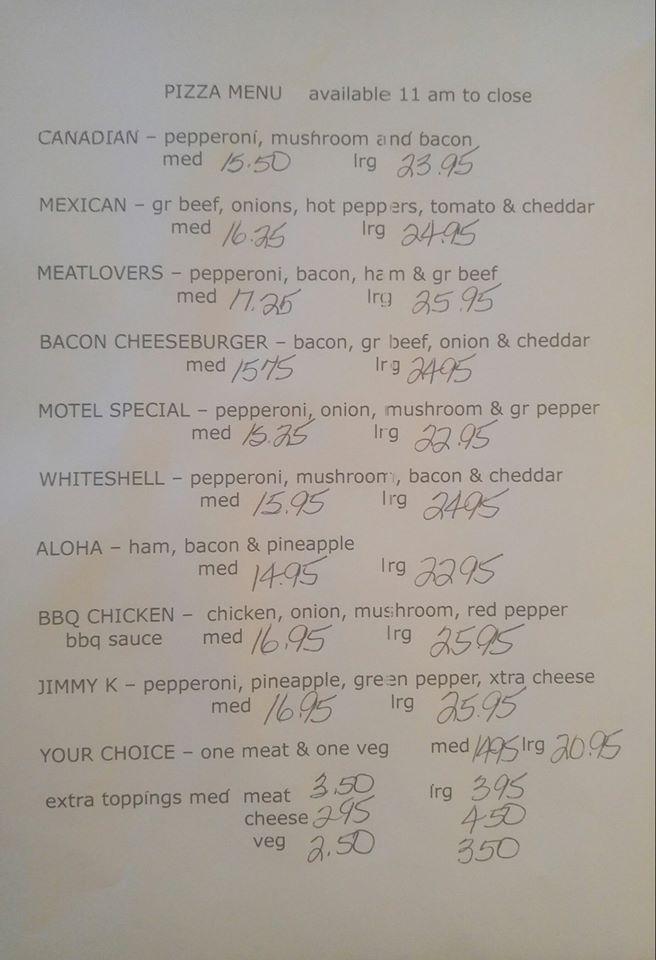 PIZZA MENU available 11 am to close
CANADIAN – pepperoni, mushroom and bacon
med 15.50 lrg 23.95
MEXICAN – gr beef, onions, hot peppers, tomato & cheddar
med 16.25 lrg 24.95
MEATLOVERS – pepperoni, bacon, ham & gr beef
med 17.25 lrg 25.95
BACON CHEESEBURGER – bacon, gr beef, onion & cheddar
med 1575 lrg 2495
MOTEL SPECIAL – pepperoni, onion, mushroom & gr pepper
med 15.25 lrg 22.95
WHITESHELL – pepperoni, mushroom, bacon & cheddar
med 15.95 lrg 2495
ALOHA – ham, bacon & pineapple
med 14.95 lrg 2295
BBQ CHICKEN – chicken, onion, mushroom, red pepper
bbq sauce med 16.95 lrg 2595
JIMMY K – pepperoni, pineapple, green pepper, xtra cheese
med 16.95 lrg 25.95
YOUR CHOICE – one meat & one veg med 1495 lrg 20.95
extra toppings med meat 3.50 lrg 395
cheese 295 450
veg 2.50 350